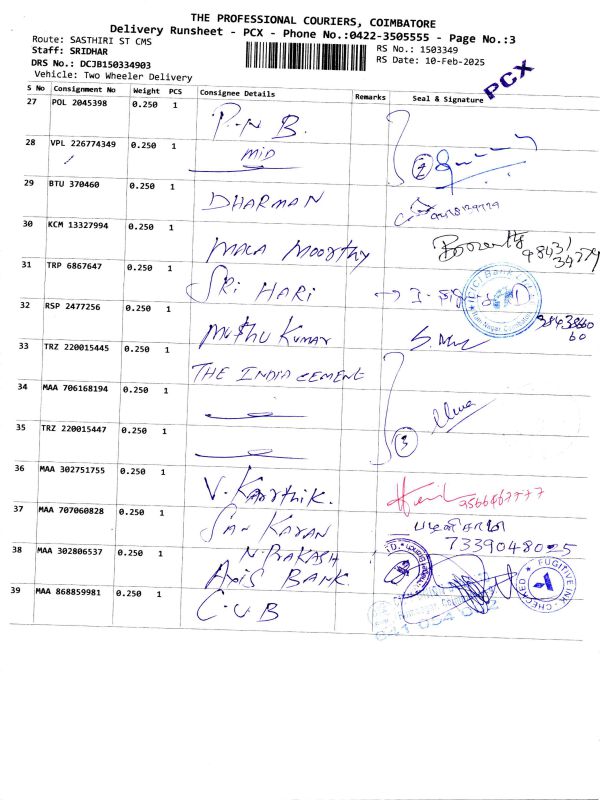 THE PROFESSIONAL COURIERS, COIMBATORE
Delivery Runsheet - PCX - Phone No.:0422-3505555 - Page No.:3
Route: SASTHIRI ST CMS
RS No.: 1503349
Staff: SRIDHAR
RS Date: 10-Feb-2025
DRS No.: DCJB150334903
PCX
Vehicle: Two Wheeler Delivery
S No Consignment No Weight PCS Consignee Details Remarks Seal & Signature
27 POL 2045398 0.250 1 P.N B.
28 VPL 226774349 0.250 1 MID 2
29 BTU 370460 0.250 1 DHARMAN
30 KCM 13327994 0.250 1 MALA MOORTHY 98431 34779
31 TRP 6867647 0.250 1 SRI HARI ICICI Bank Ltd.
32 RSP 2477256 0.250 1 MUTHU KUMAR 9843860 60
33 TRZ 220015445 0.250 1 THE INDIA CEMENT
34 MAA 706168194 0.250 1 Uma
35 TRZ 220015447 0.250 1 3
36 MAA 302751755 0.250 1 V. Karthik.
37 MAA 707060828 0.250 1 SAN KARAN 7339048025
38 MAA 302806537 0.250 1 N. PRAKASH
AXIS BANK.
39 MAA 868859981 0.250 1 C.U.B
FUGITIVE INK CHECKED
641 004